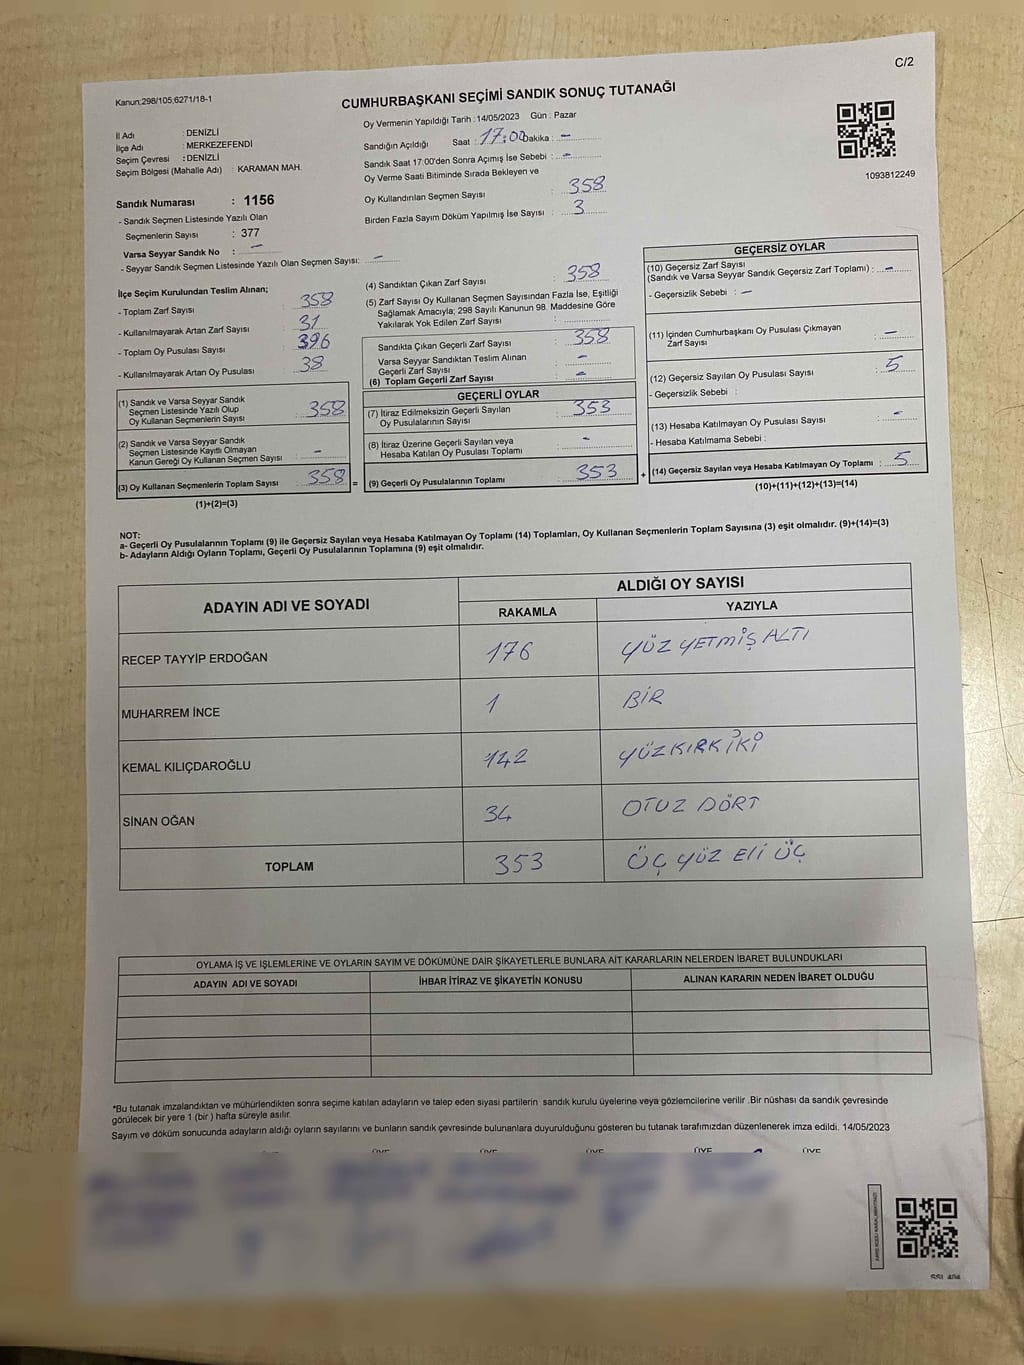 C/2
Kanun;298/105;6271/18-1
CUMHURBAŞKANI SEÇİMİ SANDIK SONUÇ TUTANAĞI
Oy Vermenin Yapıldığı Tarih : 14/05/2023 Gün : Pazar
İl Adı : DENİZLİ
İlçe Adı : MERKEZEFENDİ
Seçim Çevresi : DENİZLİ
Seçim Bölgesi (Mahalle Adı) : KARAMAN MAH.
Sandığın Açıldığı Saat : 17:00 Dakika : -
Sandık Saat 17:00'den Sonra Açımış İse Sebebi : -
Oy Verme Saati Bitiminde Sırada Bekleyen ve
Oy Kullandırılan Seçmen Sayısı : 358
Birden Fazla Sayım Döküm Yapılmış İse Sayısı : 3
1093812249
Sandık Numarası : 1156
- Sandık Seçmen Listesinde Yazılı Olan
Seçmenlerin Sayısı : 377
Varsa Seyyar Sandık No : -
- Seyyar Sandık Seçmen Listesinde Yazılı Olan Seçmen Sayısı: -
İlçe Seçim Kurulundan Teslim Alınan;
- Toplam Zarf Sayısı : 358
- Kullanılmayarak Artan Zarf Sayısı : 31
- Toplam Oy Pusulası Sayısı : 396
- Kullanılmayarak Artan Oy Pusulası : 38
(1) Sandık ve Varsa Seyyar Sandık
Seçmen Listesinde Yazılı Olup
Oy Kullanan Seçmenlerin Sayısı : 358
(2) Sandık ve Varsa Seyyar Sandık
Seçmen Listesinde Kayıtlı Olmayan
Kanun Gereği Oy Kullanan Seçmen Sayısı : -
(3) Oy Kullanan Seçmenlerin Toplam Sayısı : 358 =
(1)+(2)=(3)
(4) Sandıktan Çıkan Zarf Sayısı : 358
(5) Zarf Sayısı Oy Kullanan Seçmen Sayısından Fazla İse, Eşitliği
Sağlamak Amacıyla; 298 Sayılı Kanunun 98. Maddesine Göre
Yakılarak Yok Edilen Zarf Sayısı :
Sandıkta Çıkan Geçerli Zarf Sayısı : 358
Varsa Seyyar Sandıktan Teslim Alınan
Geçerli Zarf Sayısı : -
(6) Toplam Geçerli Zarf Sayısı : -
GEÇERLİ OYLAR
(7) İtiraz Edilmeksizin Geçerli Sayılan
Oy Pusulalarının Sayısı : 353
(8) İtiraz Üzerine Geçerli Sayılan veya
Hesaba Katılan Oy Pusulası Toplamı : -
(9) Geçerli Oy Pusulalarının Toplamı : 353 +
GEÇERSİZ OYLAR
(10) Geçersiz Zarf Sayısı
(Sandık ve Varsa Seyyar Sandık Geçersiz Zarf Toplamı) : -
- Geçersizlik Sebebi : -
(11) İçinden Cumhurbaşkanı Oy Pusulası Çıkmayan
Zarf Sayısı : -
(12) Geçersiz Sayılan Oy Pusulası Sayısı : 5
- Geçersizlik Sebebi :
(13) Hesaba Katılmayan Oy Pusulası Sayısı : -
- Hesaba Katılmama Sebebi :
(14) Geçersiz Sayılan veya Hesaba Katılmayan Oy Toplamı : 5
(10)+(11)+(12)+(13)=(14)
NOT:
a- Geçerli Oy Pusulalarının Toplamı (9) ile Geçersiz Sayılan veya Hesaba Katılmayan Oy Toplamı (14) Toplamları, Oy Kullanan Seçmenlerin Toplam Sayısına (3) eşit olmalıdır. (9)+(14)=(3)
b- Adayların Aldığı Oyların Toplamı, Geçerli Oy Pusulalarının Toplamına (9) eşit olmalıdır.
ADAYIN ADI VE SOYADI
ALDIĞI OY SAYISI
RAKAMLA YAZIYLA
RECEP TAYYİP ERDOĞAN 176 YÜZ YETMİŞ ALTI
MUHARREM İNCE 1 BİR
KEMAL KILIÇDAROĞLU 142 YÜZ KIRK İKİ
SİNAN OĞAN 34 OTUZ DÖRT
TOPLAM 353 ÜÇ YÜZ ELİ ÜÇ
OYLAMA İŞ VE İŞLEMLERİNE VE OYLARIN SAYIM VE DÖKÜMÜNE DAİR ŞİKAYETLERLE BUNLARA AİT KARARLARIN NELERDEN İBARET BULUNDUKLARI
ADAYIN ADI VE SOYADI İHBAR İTİRAZ VE ŞİKAYETİN KONUSU ALINAN KARARIN NEDEN İBARET OLDUĞU
*Bu tutanak imzalandıktan ve mühürlendikten sonra seçime katılan adayların ve talep eden siyasi partilerin sandık kurulu üyelerine veya gözlemcilerine verilir .Bir nüshası da sandık çevresinde
görülecek bir yere 1 (bir ) hafta süreyle asılır.
Sayım ve döküm sonucunda adayların aldığı oyların sayılarını ve bunların sandık çevresinde bulunanlara duyurulduğunu gösteren bu tutanak tarafımızdan düzenlenerek imza edildi. 14/05/2023
ÜYE ÜYE ÜYE ÜYE ÜYE